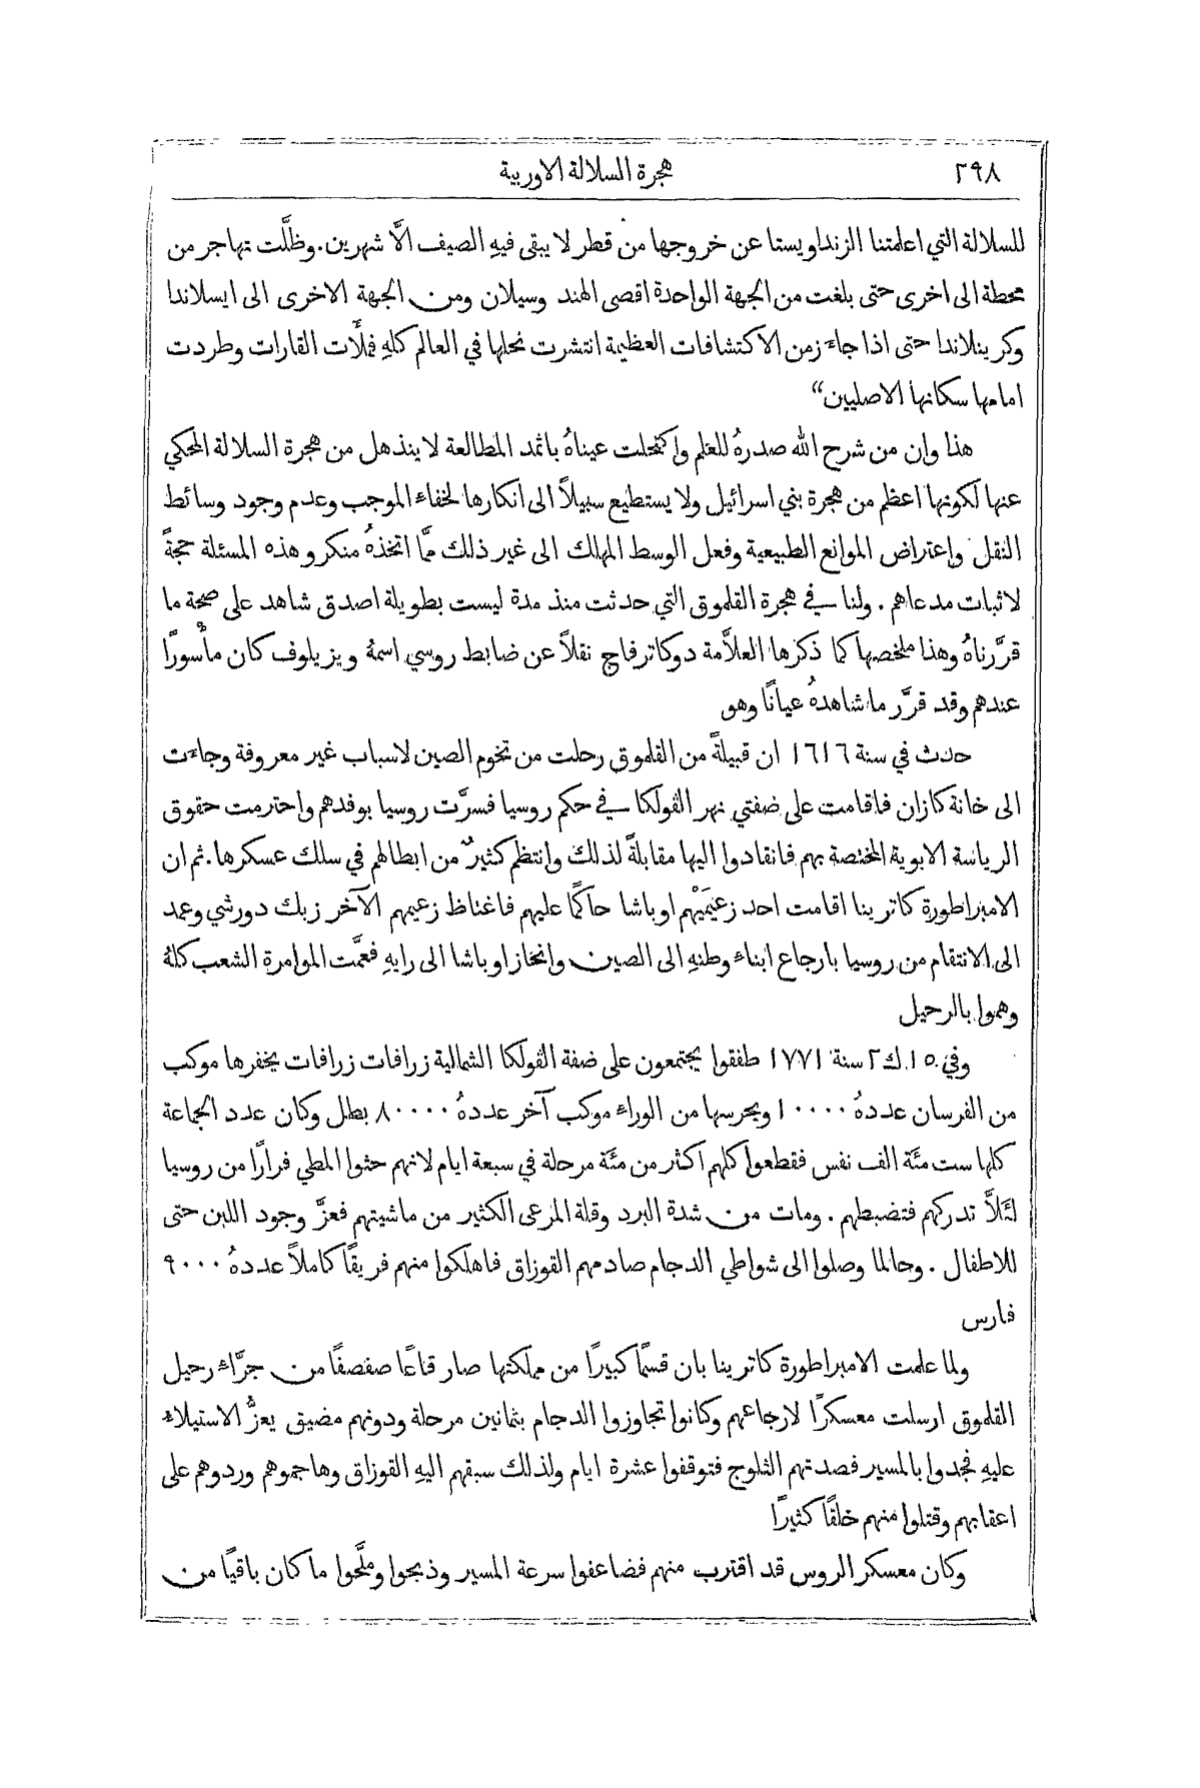 ٢٩٨ هجرة السلالة الاوربية
للسلالة التي اعلمتنا الزنداويستا عن خروجها من قطر لا يبقى فيهِ الصيف الَّا شهرين. وظلَّت تهاجر من
محطة الى اخرى حتى بلغت من الجهة الواحدة اقصى الهند وسيلان ومن الجهة الاخرى الى ايسلاندا
وكرينلاندا حتى اذا جاءَ زمن الاكتشافات العظيمة انتشرت نحلها في العالم كلهِ فملَأت القارات وطردت
امامها سكانها الاصليين“
هذا وان من شرح الله صدرهُ للعلم واكتحلت عيناهُ باثمد المطالعة لا ينذهل من هجرة السلالة المحكي
عنها لكونها اعظم من هجرة بني اسرائيل ولا يستطيع سبيلاً الى انكارها لخفاءِ الموجب وعدم وجود وسائط
النقل واعتراض الموانع الطبيعية وفعل الوسط المهلك الى غير ذلك ممَّا اتخذهُ منكرو هذه المسئلة حجةً
لاثبات مدعاهم. ولنا في هجرة القلموق التي حدثت منذ مدة ليست بطويلة اصدق شاهد على صحة ما
قرَّرناهُ وهذا ملخصها كما ذكرها العلاَّمة دوكاترفاج نقلاً عن ضابط روسي اسمهُ ويزيلوف كان مأْسورًا
عندهم وقد قرَّر ما شاهدهُ عيانًا وهو
حدث في سنة ١٦١٦ ان قبيلةً من القلموق رحلت من تخوم الصين لاسباب غير معروفة وجاءَت
الى خانة كازان فاقامت على ضفتي نهر الڤولكا في حكم روسيا فسرَّت روسيا بوفدهم واحترمت حقوق
الرياسة الابوية المختصة بهم فانقادوا اليها مقابلةً لذلك وانتظم كثيرٌ من ابطالهم في سلك عسكرها. ثم ان
الامبراطورة كاترينا اقامت احد زعيمَيْهم اوباشا حاكمًا عليهم فاغتاظ زعيمهم الآخر زبك دورشي وعمد
الى الانتقام من روسيا بارجاع ابناءِ وطنهِ الى الصين وانحاز اوباشا الى رايهِ فعمَّت الموامرة الشعب كلهُ
وهموا بالرحيل
وفي ١٥ ك٢ سنة ١٧٧١ طفقوا يجتمعون على ضفة الڤولكا الشمالية زرافات زرافات يخفرها موكب
من الفرسان عددهُ ١٠٠٠٠ ويحرسها من الوراءِ موكب آخر عددهُ ٨٠٠٠٠ بطل وكان عدد الجماعة
كلها ست مئة الف نفس فقطعوا كلهم اكثر من مئة مرحلة في سبعة ايام لانهم حثوا المطي فرارًا من روسيا
لئلاَّ تدركهم فتضبطهم. ومات من شدة البرد وقلة المرعى الكثير من ماشيتهم فعزَّ وجود اللبن حتى
للاطفال. وحالما وصلوا الى شواطي الدجام صادمهم القوزاق فاهلكوا منهم فريقًا كاملاً عددهُ ٩٠٠٠
فارس
ولما علمت الامبراطورة كاترينا بان قسمًا كبيرًا من مملكتها صار قاعًا صفصفًا من جرَّاءِ رحيل
القلموق ارسلت معسكرًا لارجاعهم وكانوا تجاوزوا الدجام بثمانين مرحلة ودونهم مضيق يعزُّ الاستيلاءِ
عليهِ فجدوا بالمسير فصدتهم الثلوج فتوقفوا عشرة ايام ولذلك سبقهم اليهِ القوزاق وهاجموهم وردوهم على
اعقابهم وقتلوا منهم خلقًا كثيرًا
وكان معسكر الروس قد اقترب منهم فضاعفوا سرعة المسير وذبحوا وملَّحوا ما كان باقيًا من